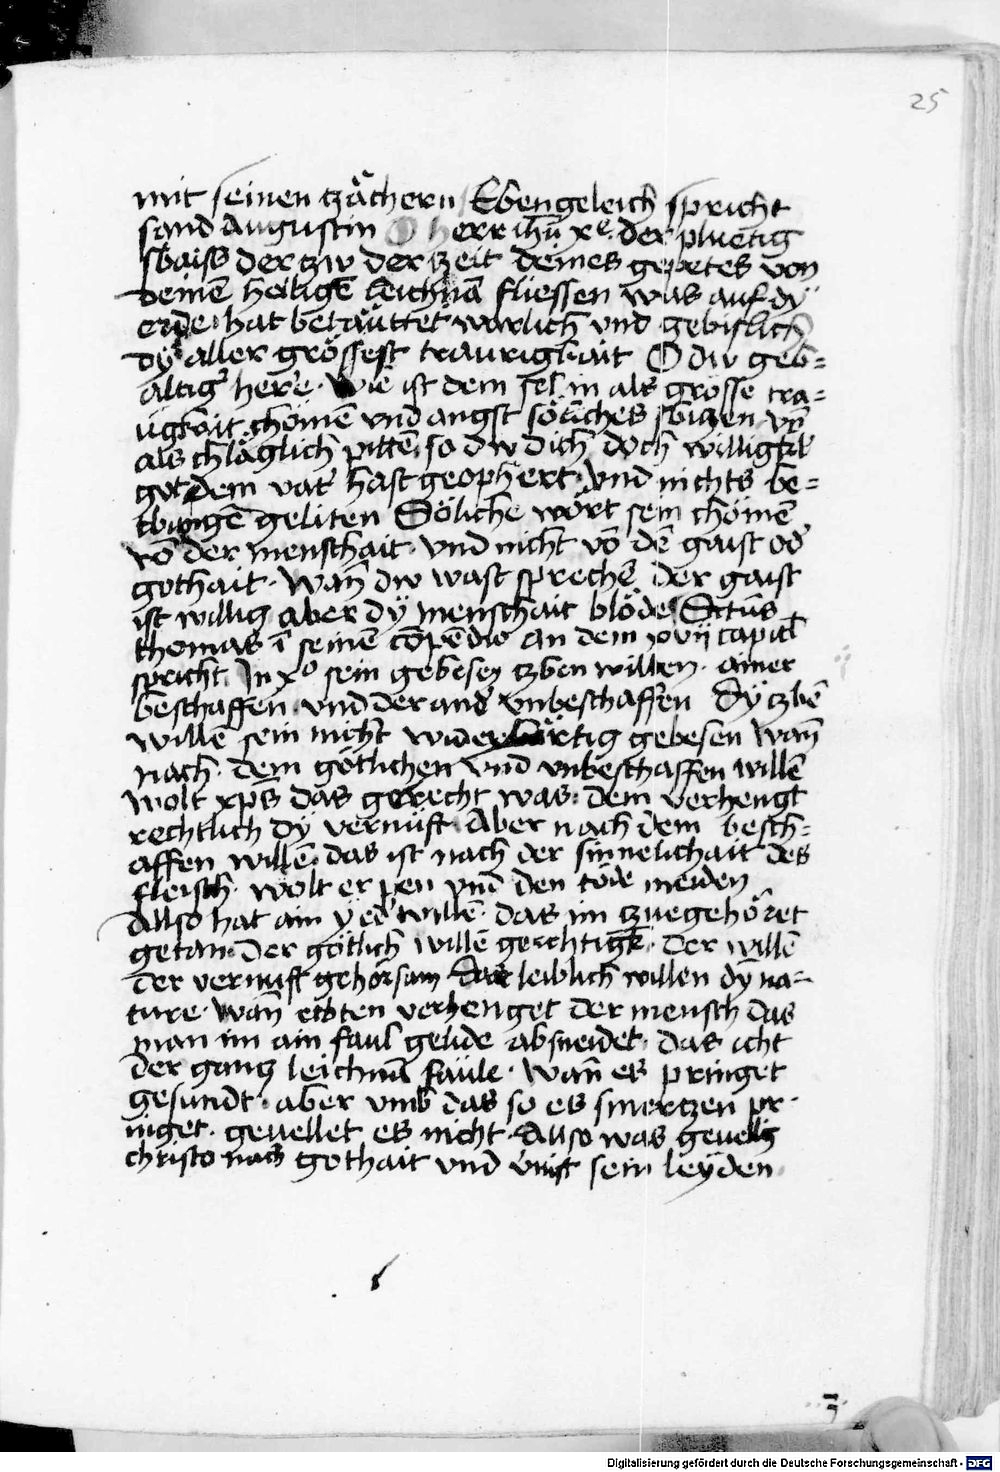 25
mit seinen czächern Ebengeleich spricht
sand Augustin O herr ihū xe der pluetig
sbaiß der czw der czeit deines gepetes von
deinē heiligē leichnā fliessen was auf dÿ
erde hat betäuttet warlich vnd gebislich
dÿ aller grössest traurigkait O dw geb=
altig' herre wie ist dem sel in als grosse tra=
ūgkait chömē vnd angst söliches sbiczen vō
als chläglich pittē so dw dich doch willigkl'
got dem vat' hast geophert vnd nichts be=
tbungē geliten Söliche wört sein chömē
vō der menschait vnd nicht vō dē gaist od'
gothait wañ dw wast sprechē der gaist
ist willig aber dÿ menschait blöde Sctūs
thomas ī seinē cōpēdio an dem xvij capitl
spricht In xo sein gebesen czben willen ainer
beschaffen vnd der and' vnbeschaffen Dÿ czbē
willē sein nicht widerbärtig gebesen wañ
nach dem götlichen vnd vnbeschaffen willē
wolt xps das gerecht was dem verhengt
rechtlich dÿ vernüft Aber nach dem besch=
affen willē das ist nach der sinnelichait des
fleisch wolt er pen vnd den tode meiden
Allso hat ain yed' willē das im czuegehöret
getan der götlich willē gerchtigk' der willē
der vernuft gehörsam das leiblich willen dÿ na=
ture wañ etbten verhenget der mensch das
man im ain faul gelide absneidet das icht
der gancz leichnā faüle wañ es pringet
gesundt aber vmb das so es smerczen pr
inget geuellet es nicht Allso was geuellig
christo nach gothait vnd v̄nüft sein leÿden
Digitalisierung gefördert durch die Deutsche Forschungsgemeinschaft - DFG